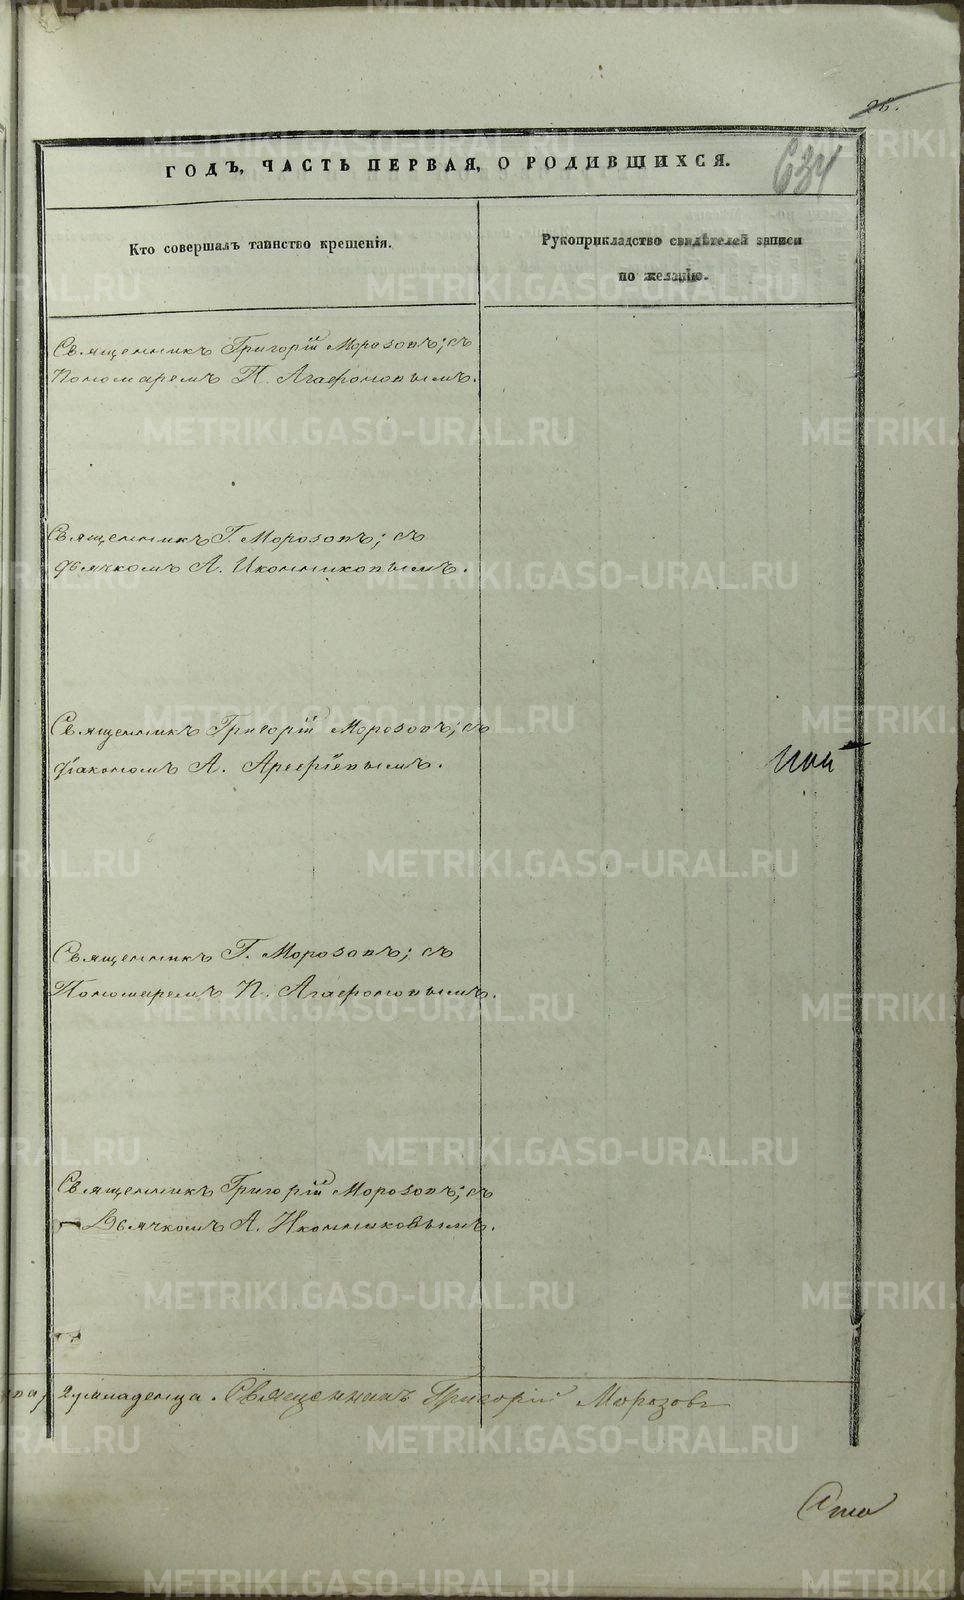 26.
634
ГОДЪ, ЧАСТЬ ПЕРВАЯ, О РОДИВШИХСЯ.
Кто совершалъ таинство крещенія.
Рукоприкладство свидѣтелей записи
по желанію.
Священникъ Григорій Морозовъ; съ
Пономаремъ П. Агафоновымъ.
Священникъ Г. Морозовъ; съ
дьячкомъ А. Иконниковымъ.
Священникъ Григорій Морозовъ; съ
діакономъ А. Арефіевымъ.
Священникъ Г. Морозовъ; съ
Пономаремъ П. Агафоновымъ.
Священникъ Григорій Морозовъ; съ
Дьячкомъ А. Иконниковымъ.
младенца. Священникъ Григорій Морозовъ
METRIKI.GASO-URAL.RU